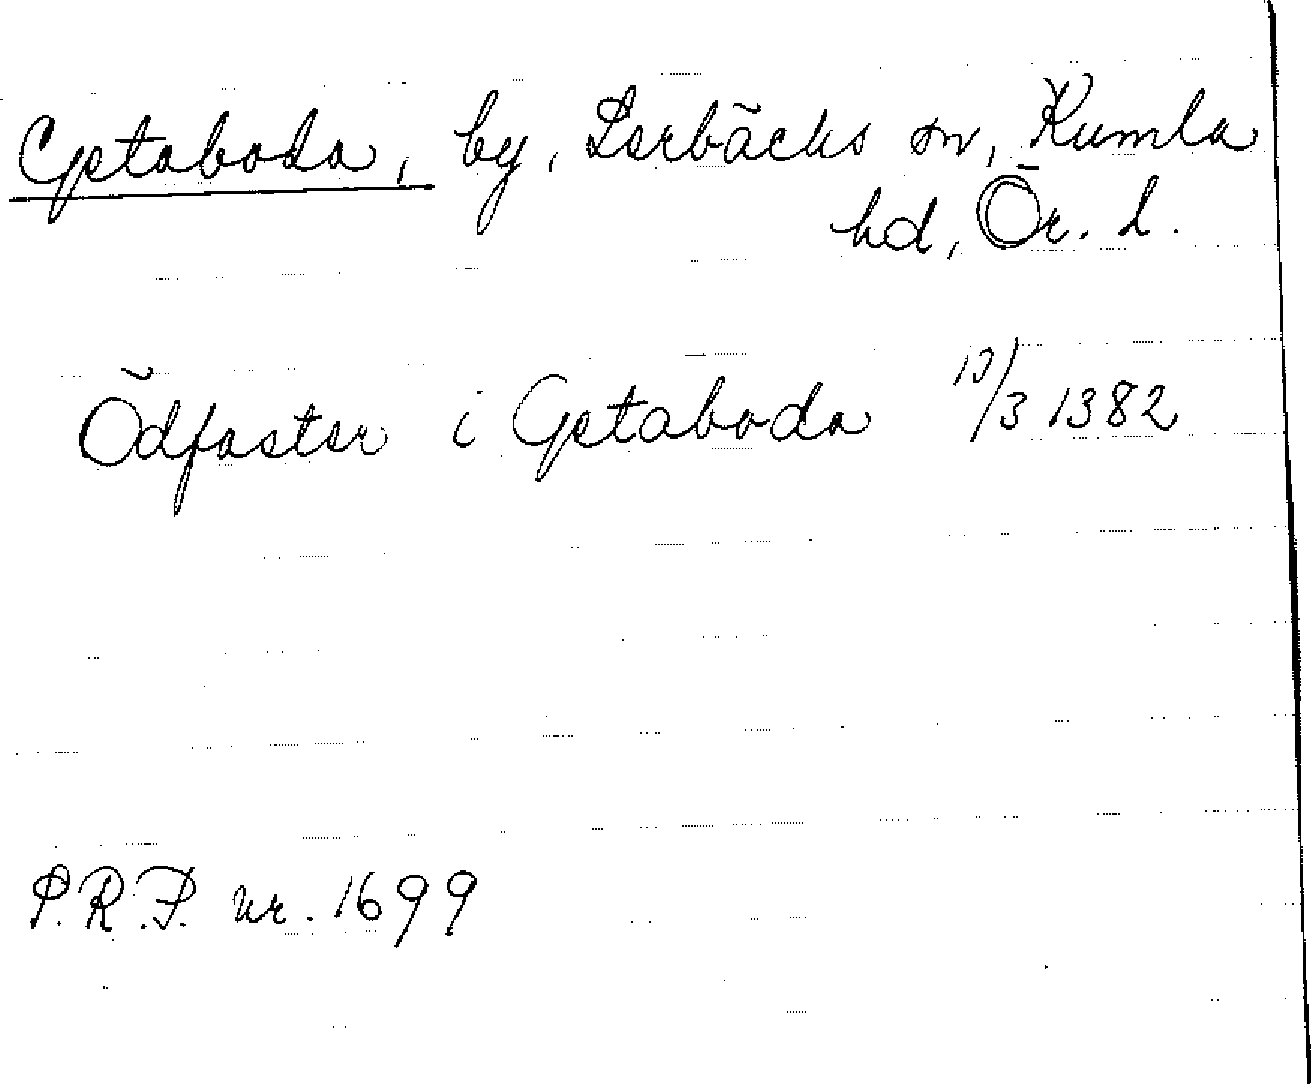 Getaboda, by, Lerbäcks sn, Kumla
hd, Ör. l.
Ödfaster i Getaboda 10/3 1382
S.R.P. nr. 1699